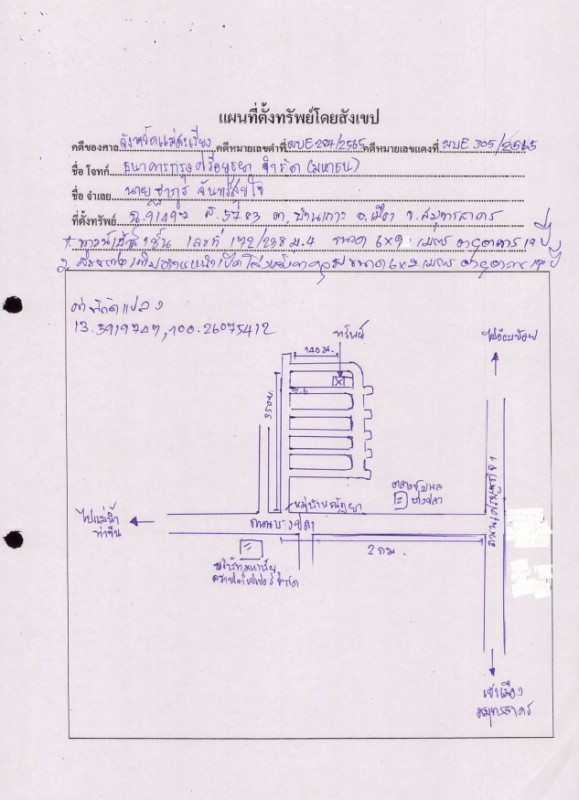 แผนที่ตั้งทรัพย์โดยสังเขป
คดีของศาล จังหวัดแม่สะเรียง คดีหมายเลขดำที่ ผบE 204/2565 คดีหมายเลขแดงที่ ผบE 305/2565
ชื่อ โจทก์ ธนาคารกรุงศรีอยุธยา จำกัด (มหาชน)
ชื่อ จำเลย นาย จันทร์สุขใจ
ที่ตั้งทรัพย์ ฉ.91492 ต.บ้านเกาะ อ.เมือง จ.สมุทรสาคร
1. ทาวน์เฮ้าส์ ชั้น เลขที่ 172/238 ม.4 ขนาด 6x9 เมตร อายุอาคาร 19 ปี
2. ขนาด 6x2 เมตร อายุอาคาร 19 ปี
ค่าพิกัดแปลง
13.5919747, 100.26075412
ทรัพย์
140 ม.
350 ม.
ไปอ้อมน้อย
ถนนเศรษฐกิจ 1
บางปลา
ไปแม่น้ำ
ท่าจีน
ถนนบางปลา
2 กม.
เข้าเมือง
สมุทรสาคร